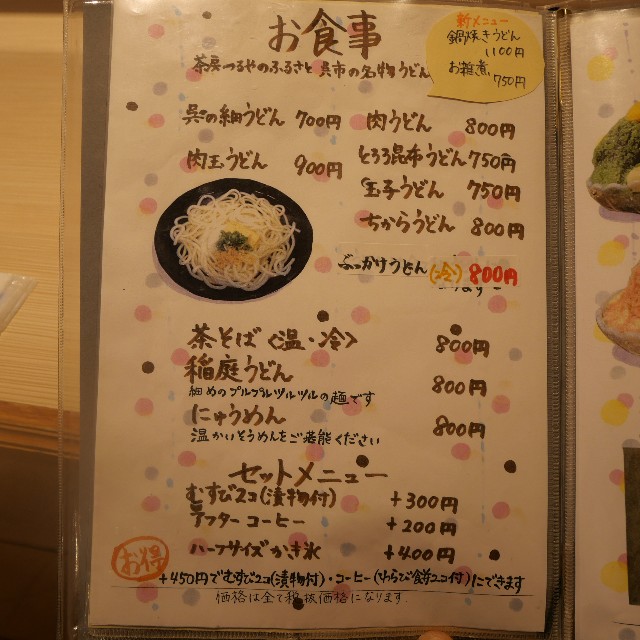 お食事
新メニュー
鍋焼きうどん
1100円
お雑煮
750円
茶房つるやのふるさと 呉市の名物うどん
呉の細うどん 700円
肉うどん 800円
肉玉うどん 900円
とろろ昆布うどん 750円
玉子うどん 750円
ちからうどん 800円
ぶっかけうどん(冷) 800円
ります
茶そば〈温・冷〉 800円
稲庭うどん 800円
細めのプルプルツルツルの麺です
にゅうめん 800円
温かいそうめんをご堪能ください
セットメニュー
むすび2コ(漬物付) +300円
アフターコーヒー +200円
ハーフサイズかき氷 +400円
お得
+450円でむすび2コ(漬物付)・コーヒー(わらび餅2コ付)にできます
価格は全て税抜価格になります